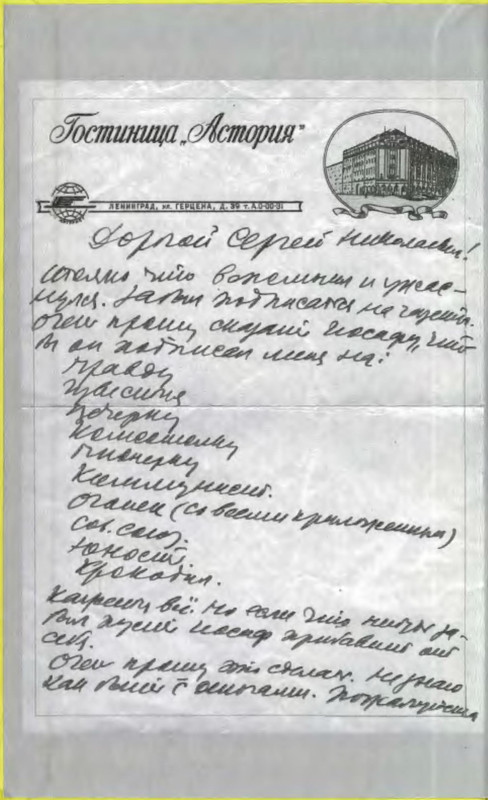 Гостиница „Астория"
ЛЕНИНГРАД, ул. ГЕРЦЕНА, Д. 39 т. А.0-00-01
Дорогой Сергей Николаевич!
что вспомнил и ужас-
нулся. Забыл подписаться на газеты.
Очень прошу сказать Иосафу, чтоб
он подписал меня на:
Правду
Известия
Вечерку
Комсомолку
Пионерку
Коммунист.
Огонек (со всеми приложениями)
Сов. союз.
Юность
Крокодил.
Кажется всё. Но если что нибудь за-
был пусть Иосаф прибавит от
себя.
Очень прошу это сделать. Не знаю
как быть с деньгами. Пожалуйста